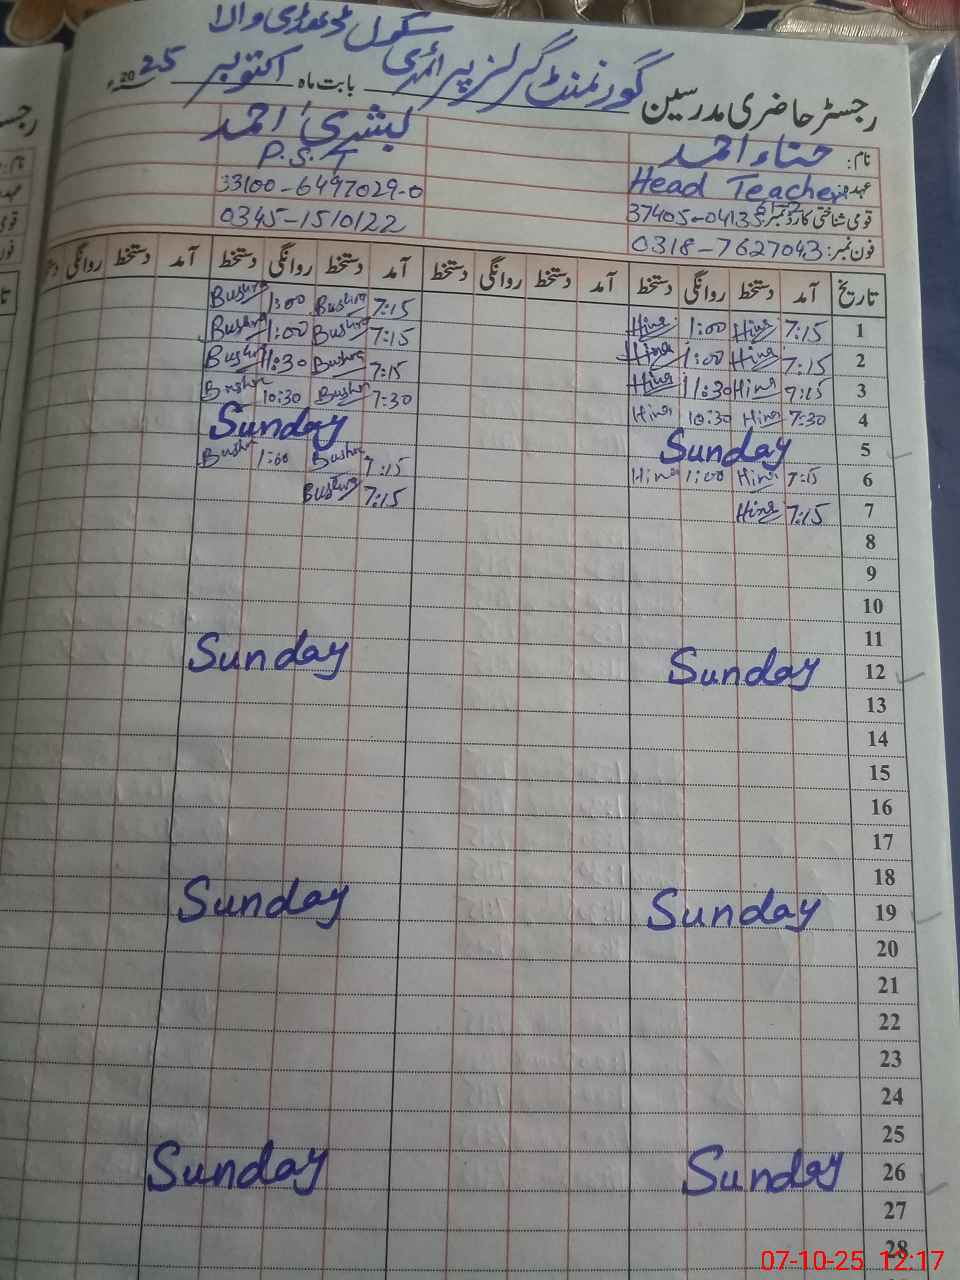 گورنمنٹ گرلز پرائمری سکول ڈھڈی والا
رجسٹر حاضری مدرسین بابت ماہ اکتوبر 2025ء
نام: حناء احمد بشریٰ احمد
عہدہ: Head Teacher P.S.T
قومی شناختی کارڈ نمبر: 33100-6497029-0
فون نمبر: 0318-7627043 0345-1510122
تاریخ آمد دستخط روانگی دستخط آمد دستخط روانگی دستخط آمد دستخط روانگی دستخط آمد دستخط روانگی
1 7:15 Hina 1:00 Hina 7:15 Bushra 1:00 Bushra
2 7:15 Hina 1:00 Hina 7:15 Bushra 1:00 Bushra
3 7:15 Hina 11:30 Hina 7:15 Bushra 11:30 Bushra
4 7:30 Hina 10:30 Hina 7:30 Bushra 10:30 Bushra
5 Sunday Sunday
6 7:15 Hina 1:00 Hina 7:15 Bushra 1:00 Bushra
7 7:15 Hina 7:15 Bushra
8
9
10
11
12 Sunday Sunday
13
14
15
16
17
18
19 Sunday Sunday
20
21
22
23
24
25
26 Sunday Sunday
27
28
07-10-25 12:17